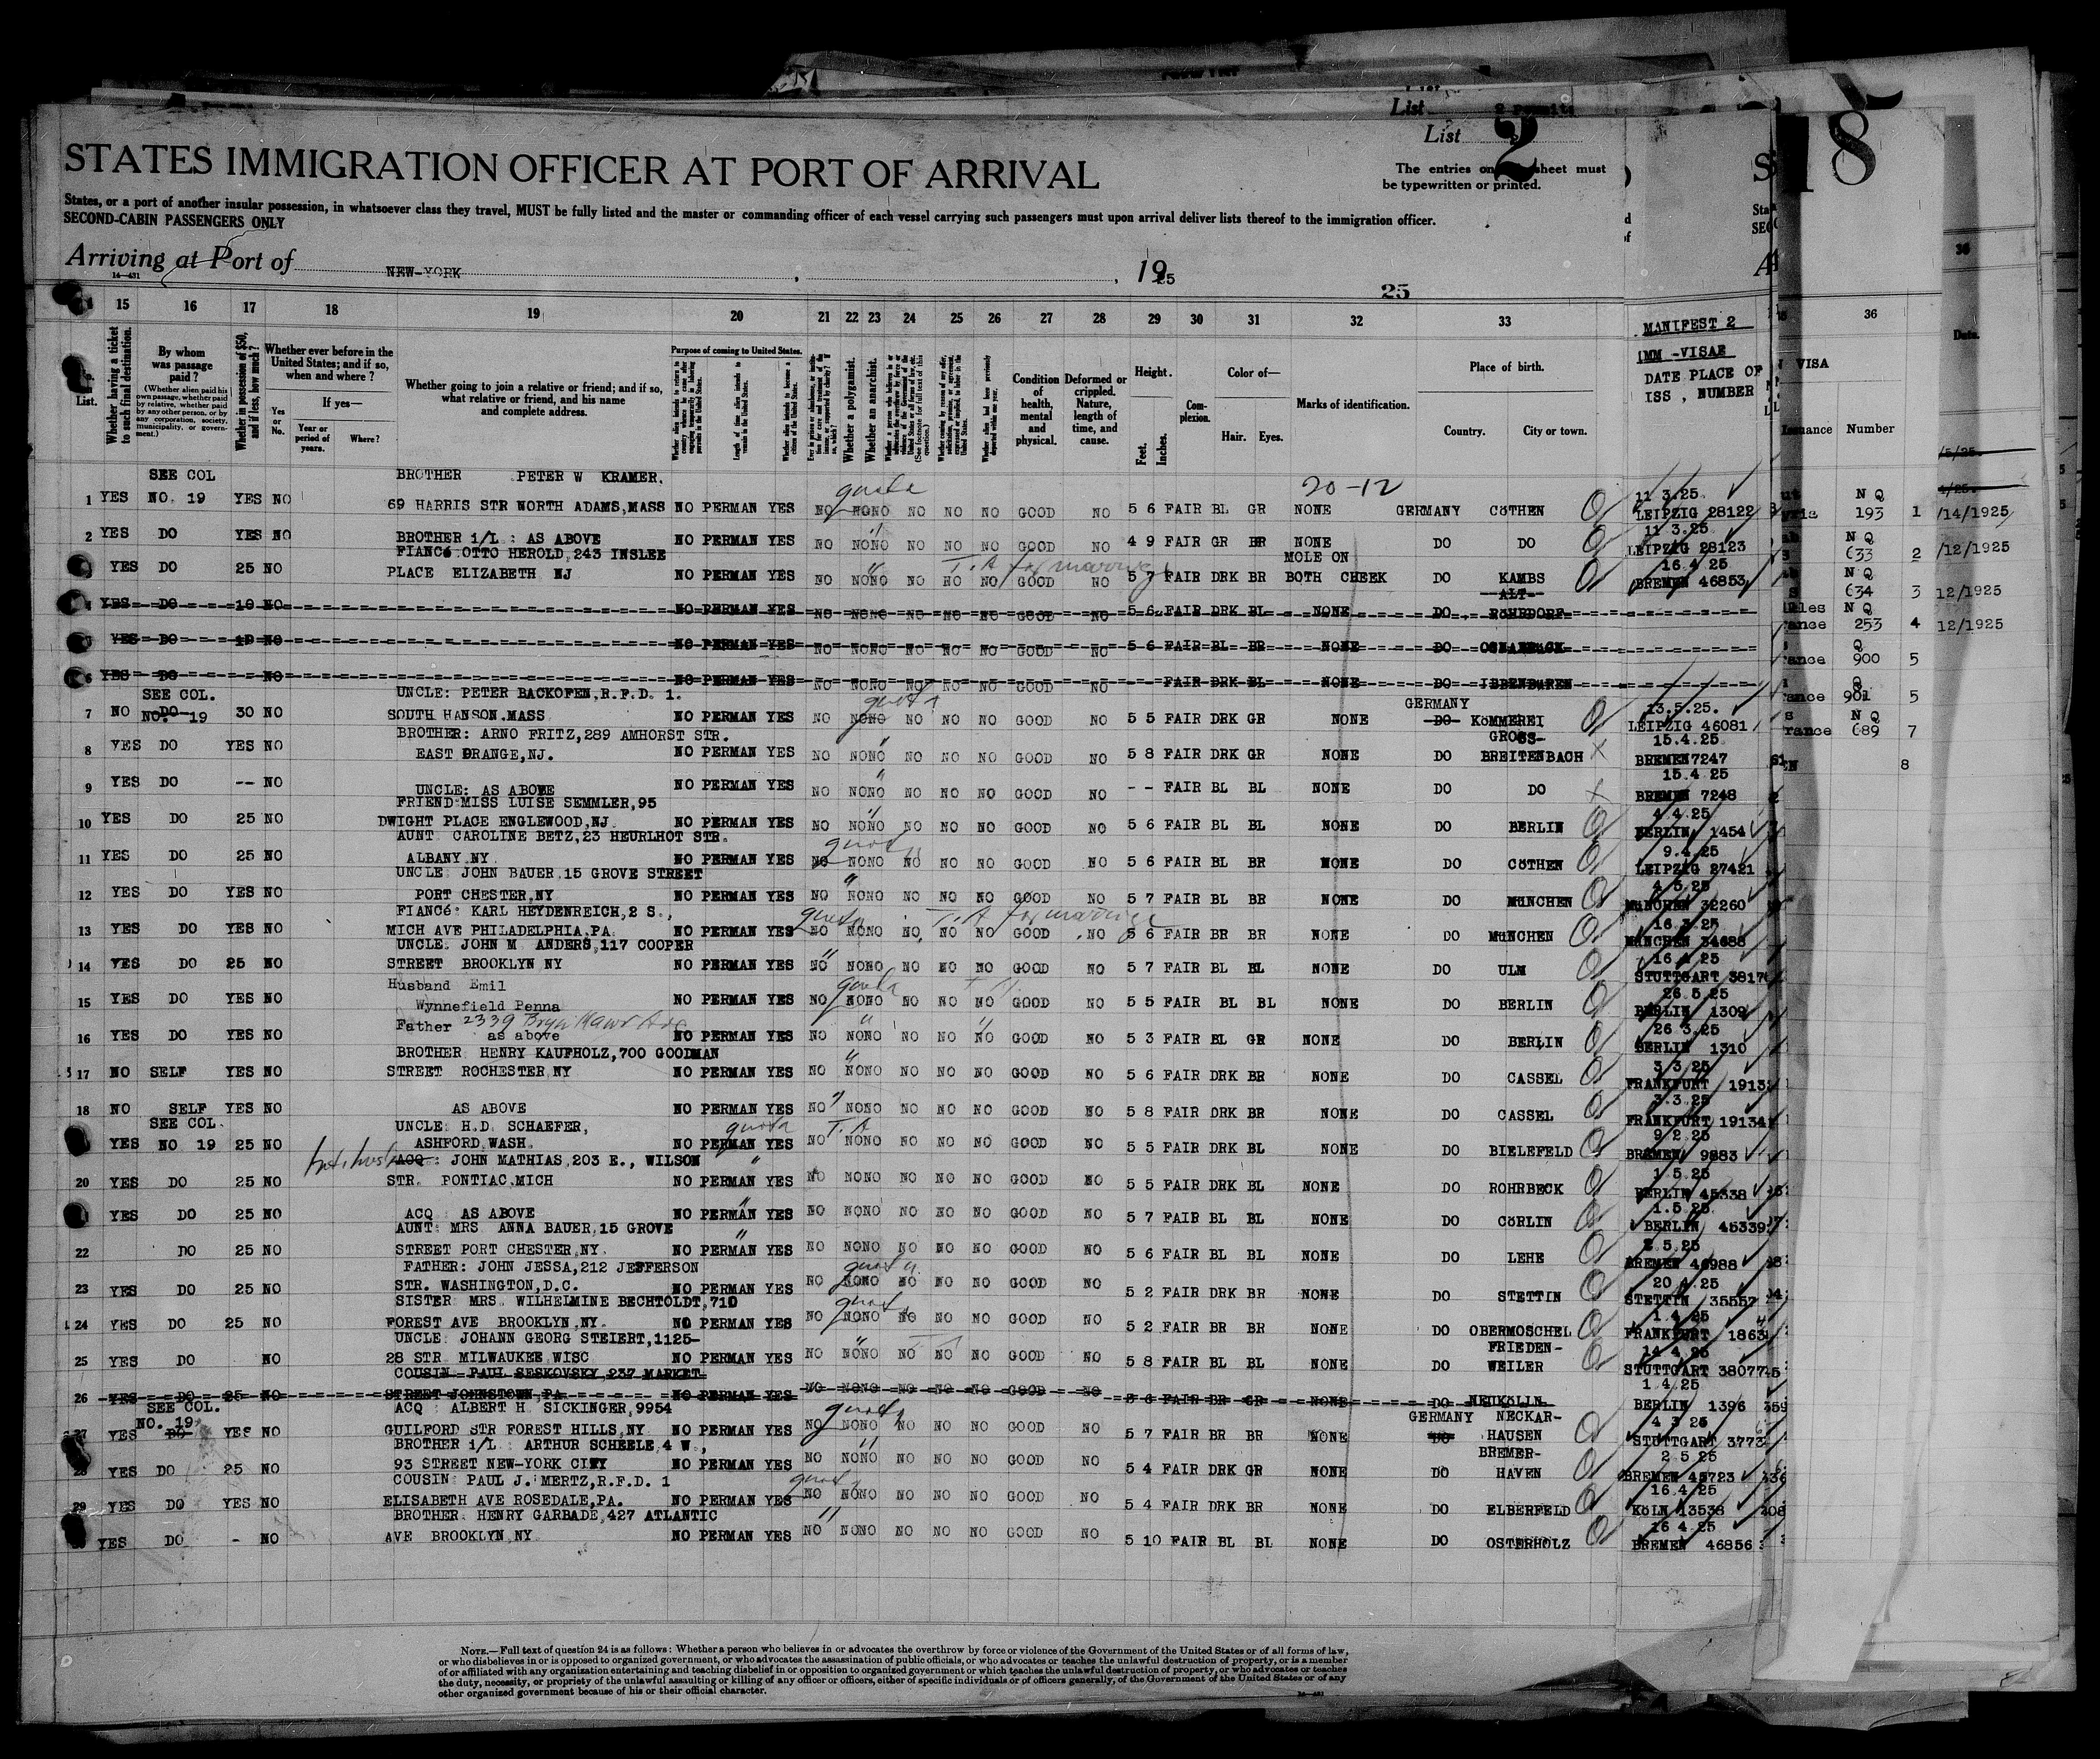 List 2
STATES IMMIGRATION OFFICER AT PORT OF ARRIVAL
The entries on sheet must
be typewritten or printed.
States, or a port of another insular possession, in whatsoever class they travel, MUST be fully listed and the master or commanding officer of each vessel carrying such passengers must upon arrival deliver lists thereof to the immigration officer.
SECOND-CABIN PASSENGERS ONLY
Arriving at Port of NEW-YORK, 1925
25
18
15 16 17 18 19 20 21 22 23 24 25 26 27 28 29 30 31 32 33 36
Whether having a ticket to such final destination.
By whom was passage paid?
(Whether alien paid his own passage, whether paid by relative, whether paid by any other person, or by any corporation, society, municipality, or government.)
Whether in possession of $50, and if less, how much?
Whether ever before in the United States; and if so, when and where?
If yes—
Yes or No.
Year or period of years.
Where?
Whether going to join a relative or friend; and if so, what relative or friend, and his name and complete address.
Purpose of coming to United States.
Whether a polygamist.
Whether an anarchist.
Condition of health, mental and physical.
Deformed or crippled. Nature, length of time, and cause.
Height.
Feet. Inches.
Complexion.
Color of—
Hair. Eyes.
Marks of identification.
Place of birth.
Country. City or town.
MANIFEST 2
IMM -VISAE
DATE PLACE OF
ISS , NUMBER
VISA
Number
Date.
SEE COL BROTHER PETER W KRAMER. quota 20-12 11 3.25.
1 YES NO. 19 YES NO 69 HARRIS STR NORTH ADAMS,MASS NO PERMAN YES NO NONO NO NO NO GOOD NO 5 6 FAIR BL GR NONE GERMANY CöTHEN LEIPZIG 28122
11 3.25
2 YES DO YES NO BROTHER i/L : AS ABOVE NO PERMAN YES NO NONO NO NO NO GOOD NO 4 9 FAIR GR BR NONE DO DO LEIPZIG 28123
FIANCé.OTTO HEROLD,243 INSLEE T.A for marriage MOLE ON 16.4.25
YES DO 25 NO PLACE ELIZABETH NJ NO PERMAN YES NO NONO NO NO NO GOOD NO 5 7 FAIR DRK BR BOTH CHEEK DO KAMBS BREMEN 46853
ALT-
YES DO 10 NO NO PERMAN YES NO NONO NO NO NO GOOD NO 5 6 FAIR DRK BL NONE DO ROHRDORF
YES DO NO NO PERMAN YES NO NONO NO NO NO GOOD NO 5 6 FAIR BL BR NONE DO OSNABRüCK
6 YES DO NO NO PERMAN YES NO NONO NO NO NO GOOD NO FAIR DRK BL NONE DO IBBENBüREN
SEE COL. UNCLE: PETER BACKOFEN,R.F.D. 1. quota GERMANY 13.5.25.
7 NO DO NO. 19 30 NO SOUTH HANSON.MASS NO PERMAN YES NO NONO NO NO NO GOOD NO 5 5 FAIR DRK GR NONE DO KöMMEREI LEIPZIG 46081
BROTHER: ARNO FRITZ,289 AMHORST STR. GROSS- 15.4.25
8 YES DO YES NO EAST ORANGE,NJ. NO PERMAN YES NO NONO NO NO NO GOOD NO 5 8 FAIR DRK GR NONE DO BREITENBACH X BREMEN7247
15.4 25
9 YES DO -- NO UNCLE: AS ABOVE NO PERMAN YES NO NONO NO NO NO GOOD NO - - FAIR BL BL NONE DO DO X BREMEN 7248
FRIEND MISS LUISE SEMMLER,95 4.4.25
10 YES DO 25 NO DWIGHT PLACE ENGLEWOOD,NJ NO PERMAN YES NO NONO NO NO NO GOOD NO 5 6 FAIR BL BL NONE DO BERLIN BERLIN 1454
AUNT CAROLINE BETZ,23 HEURLHOT STR. quota 9.4.25
11 YES DO 25 NO ALBANY NY NO PERMAN YES NO NONO NO NO NO GOOD NO 5 6 FAIR BL BR NONE DO CöTHEN LEIPZIG 27421
UNCLE JOHN BAUER,15 GROVE STREET 4 5 25
12 YES DO YES NO PORT CHESTER,NY NO PERMAN YES NO NONO NO NO NO GOOD NO 5 7 FAIR BL BR NONE DO MüNCHEN MüNCHEN 32260
FIANCé: KARL HEYDENREICH,2 S., quota T.A for marriage 16.3.25
13 YES DO YES NO MICH AVE PHILADELPHIA,PA NO PERMAN YES NO NONO NO NO NO GOOD NO 5 6 FAIR BR BR NONE DO MüNCHEN MüNCHEN 34688
UNCLE. JOHN M ANDERS,117 COOPER 16.4 25
14 YES DO 25 NO STREET BROOKLYN NY NO PERMAN YES NO NONO NO NO NO GOOD NO 5 7 FAIR BL BL NONE DO ULM STUTTGART 3817
Husband Emil quota 26 5.25
15 YES DO YES NO Wynnefield Penna NO PERMAN YES NO NONO NO NO NO GOOD NO 5 5 FAIR BL BL NONE DO BERLIN BERLIN 1309
Father 2339 Bryn Mawr Ave 26 3.25
16 YES DO YES NO as above NO PERMAN YES NO NONO NO NO NO GOOD NO 5 3 FAIR BL GR NONE DO BERLIN BERLIN 1310
BROTHER HENRY KAUFHOLZ,700 GOODMAN 3 3.25
17 NO SELF YES NO STREET ROCHESTER NY NO PERMAN YES NO NONO NO NO NO GOOD NO 5 6 FAIR DRK BR NONE DO CASSEL FRANKFURT 1913
3.3.25
18 NO SELF YES NO AS ABOVE NO PERMAN YES NO NONO NO NO NO GOOD NO 5 8 FAIR DRK BR NONE DO CASSEL FRANKFURT 19134
SEE COL. UNCLE: H.D. SCHAEFER, quota T.A 9/2.25
YES NO 19 25 NO ASHFORD,WASH. NO PERMAN YES NO NONO NO NO NO GOOD NO 5 5 FAIR DRK BL NONE DO BIELEFELD BREMEN 9883
ACQ : JOHN MATHIAS,203 E., WILSON 1.5.25
20 YES DO 25 NO STR. PONTIAC,MICH NO PERMAN YES NO NONO NO NO NO GOOD NO 5 5 FAIR DRK BL NONE DO ROHRBECK BERLIN 45338
1.5.25.
YES DO 25 NO ACQ AS ABOVE NO PERMAN YES NO NONO NO NO NO GOOD NO 5 7 FAIR BL BL NONE DO CöRLIN BERLIN 45339
AUNT: MRS ANNA BAUER,15 GROVE 2 5.25
22 DO 25 NO STREET PORT CHESTER,NY. NO PERMAN YES NO NONO NO NO NO GOOD NO 5 6 FAIR BL BL NONE DO LEHE BREMEN 46988
FATHER: JOHN JESSA,212 JEFFERSON quota 20 4.25
23 YES DO 25 NO STR. WASHINGTON,D.C. NO PERMAN YES NO NONO NO NO NO GOOD NO 5 2 FAIR BR BR NONE DO STETTIN STETTIN 35557
SISTER MRS. WILHELMINE BECHTOLDT,710 quota 1.4.25
24 YES DO 25 NO FOREST AVE BROOKLYN,NY. NO PERMAN YES NO NONO NO NO NO GOOD NO 5 2 FAIR BR BR NONE DO OBERMOSCHEL FRANKFURT 1863
UNCLE: JOHANN GEORG STEIERT,1125- FRIEDEN- 14.4.25
25 YES DO NO 28 STR MILWAUKEE WISC NO PERMAN YES NO NONO NO NO NO GOOD NO 5 8 FAIR BL BL NONE DO WEILER STUTTGART 38077
COUSIN PAUL SESKOVSKY,237 MARKET 1 4.25
26 YES DO 25 NO STREET JOHNSTOWN,PA NO PERMAN YES NO NONO NO NO NO GOOD NO 5 6 FAIR BR GR NONE DO NEUKöLLN BERLIN 1396
SEE COL. ACQ : ALBERT H SICKINGER,9954 quota GERMANY NECKAR- 4 3 25
27 YES NO. 19 DO YES NO GUILFORD STR FOREST HILLS,NY NO PERMAN YES NO NONO NO NO NO GOOD NO 5 7 FAIR BR BR NONE DO HAUSEN STUTTGART 3773
BROTHER i/L : ARTHUR SCHEELE,4 W, BREMER- 2 5 25
28 YES DO 25 NO 93 STREET NEW-YORK CITY NO PERMAN YES NO NONO NO NO NO GOOD NO 5 4 FAIR DRK GR NONE DO HAVEN BREMEN 45723
COUSIN PAUL J. MERTZ,R.F.D. 1 quota 16.4.25
29 YES DO YES NO ELISABETH AVE ROSEDALE,PA. NO PERMAN YES NO NONO NO NO NO GOOD NO 5 4 FAIR DRK BR NONE DO ELBERFELD KöLN 13538
BROTHER HENRY GARBADE,427 ATLANTIC 16 4.25
YES DO - NO AVE BROOKLYN,NY NO PERMAN YES NO NONO NO NO NO GOOD NO 5 10 FAIR BL BL NONE DO OSTERHOLZ BREMEN 46856
N Q
193 1 /14/1925
N Q
633 2 /12/1925
N Q
634 3 12/1925
N Q
253 4 12/1925
Q
900 5
Q
901 5
N Q
689 7
8
NOTE.—Full text of question 24 is as follows: Whether a person who believes in or advocates the overthrow by force or violence of the Government of the United States or of all forms of law,
or who disbelieves in or is opposed to organized government, or who advocates the assassination of public officials, or who advocates or teaches the unlawful destruction of property, or is a member
of or affiliated with any organization entertaining and teaching disbelief in or opposition to organized government or which teaches the unlawful destruction of property, or who advocates or teaches
the duty, necessity, or propriety of the unlawful assaulting or killing of any officer or officers, either of specific individuals or of officers generally, of the Government of the United States or of any
other organized government because of his or their official character.